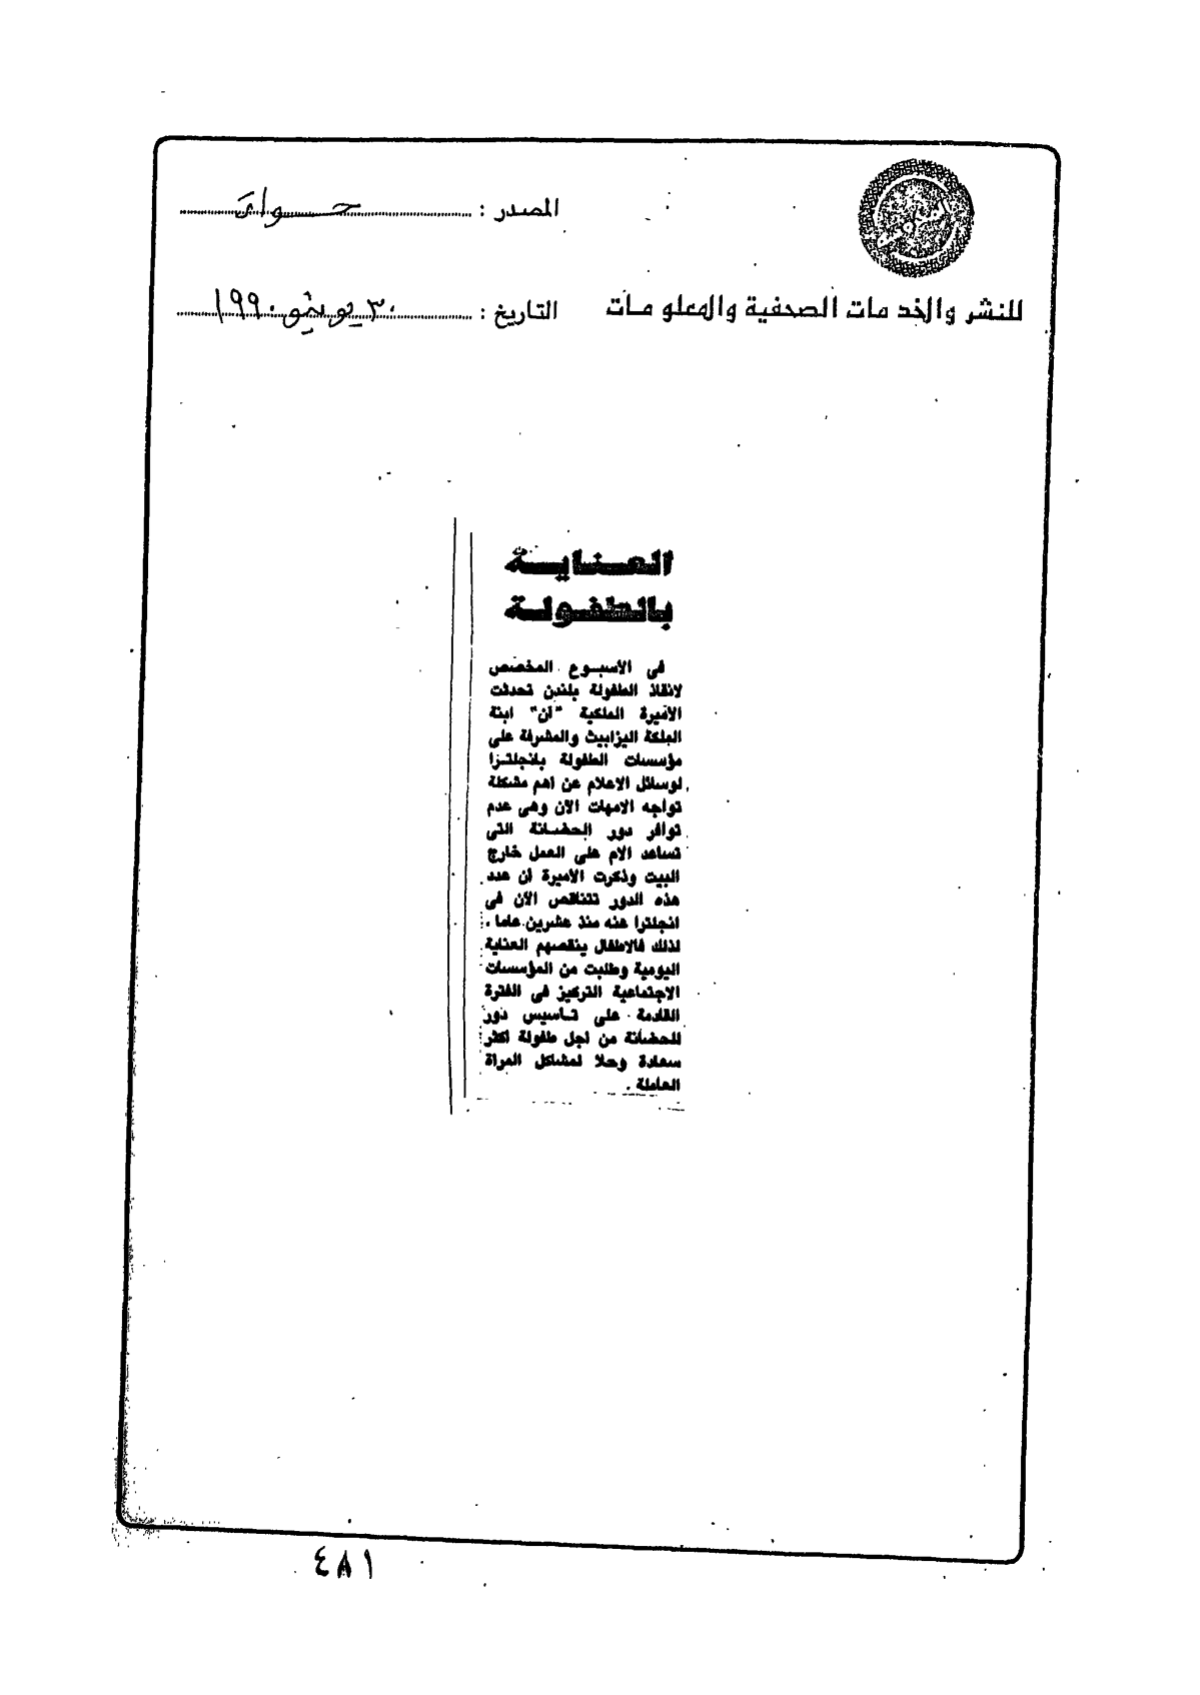 المصدر : حواء
للنشر والخدمات الصحفية والمعلومات
التاريخ : ٣٠ يونيو ١٩٩٠
العناية
بالطفولة
فى الأسبوع المخصص
لانقاذ الطفولة بلندن تحدثت
الأميرة الملكية "آن" ابنة
الملكة اليزابيث والمشرفة على
مؤسسات الطفولة بانجلترا
لوسائل الاعلام عن اهم مشكلة
تواجه الامهات الآن وهى عدم
توافر دور الحضانة التى
تساعد الام على العمل خارج
البيت وذكرت الأميرة أن عدد
هذه الدور تتناقص الآن فى
انجلترا عنه منذ عشرين عاما ،
لذلك فالاطفال ينقصهم العناية
اليومية وطلبت من المؤسسات
الاجتماعية التركيز فى الفترة
القادمة على تأسيس دور
للحضانة من اجل طفولة اكثر
سعادة وحلا لمشاكل المرأة
العاملة .
٤٨١